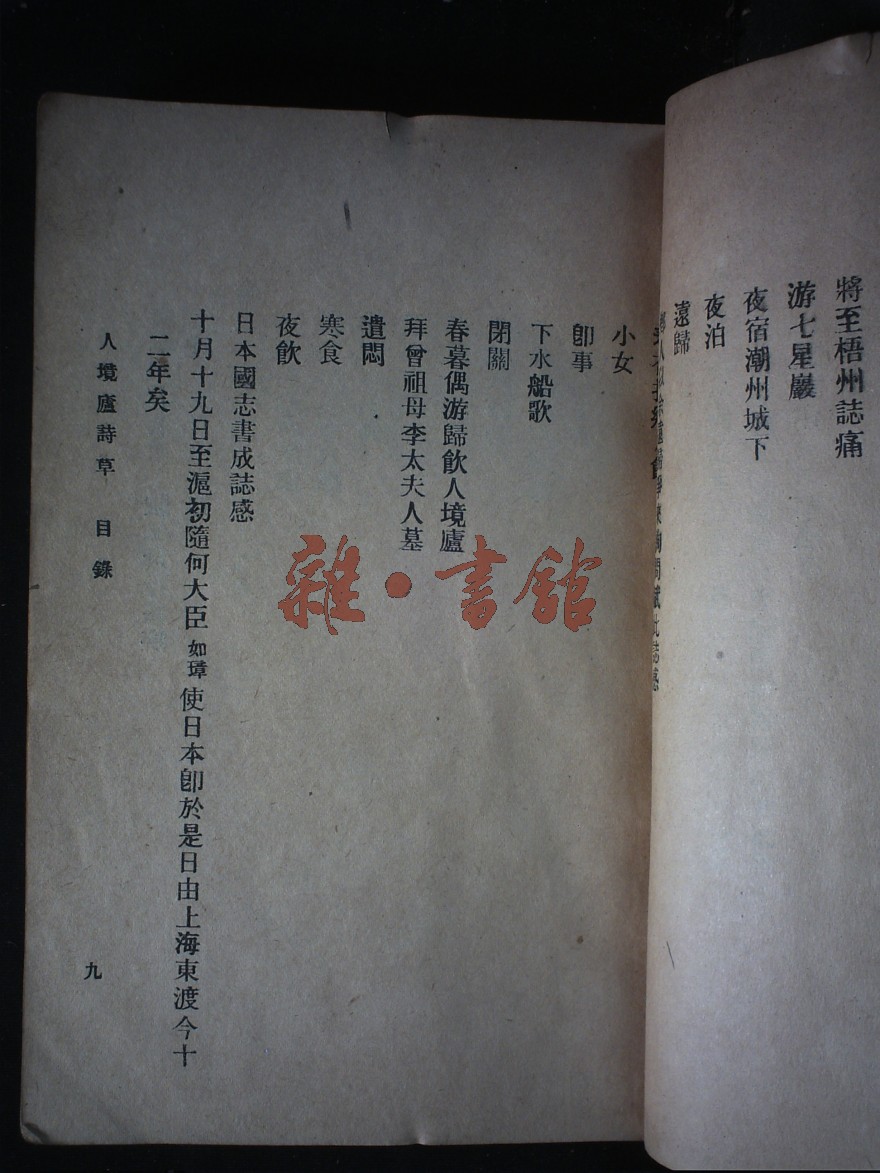 將至梧州誌痛
游七星巖
夜宿潮州城下
夜泊
遠歸
小女
卽事
下水船歌
閉關
春暮偶游歸飲人境廬
拜曾祖母李太夫人墓
遣悶
寒食
夜飲
日本國志書成誌感
十月十九日至滬初隨何大臣如璋使日本卽於是日由上海東渡今十
二年矣
人境廬詩草 目錄
九
雜·書館